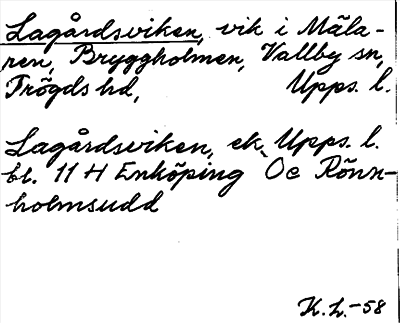 Lagårdsviken, vik i Mäla-
ren, Bryggholmen, Vallby sn,
Trögds hd, Upps. l.
Lagårdsviken, ek. Upps. l.
bl. 11 H Enköping Oc Rönn-
holmsudd
K. L. -58